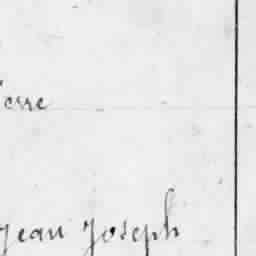 erre
Jean Joseph